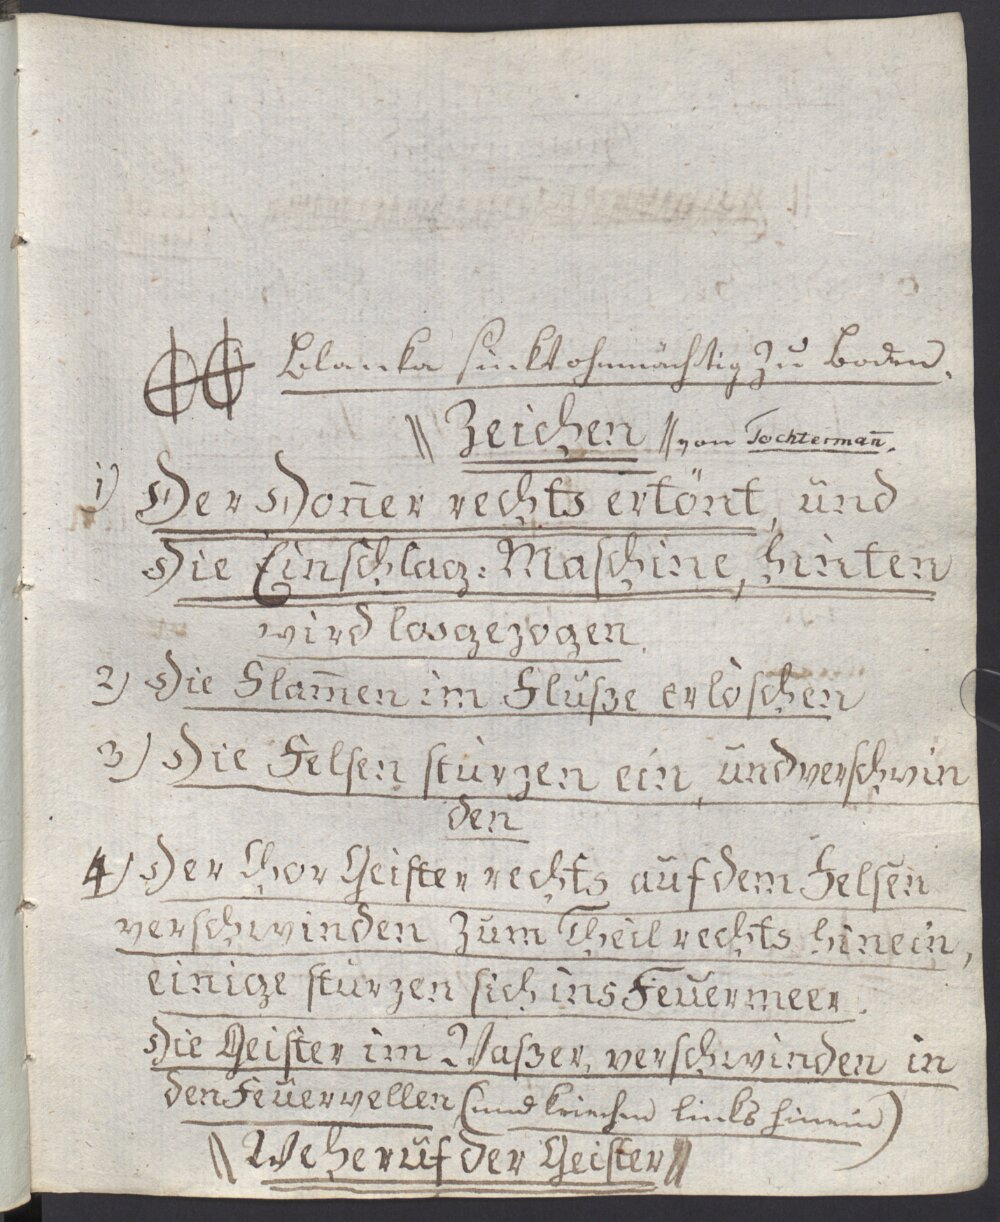 Blanka sinkt ohnmächtig zu Boden.
|| Zeichen || von Tochterman̄.
1) Der Don̄er rechts ertönt, und
Die Einschlag: Maschine, hinten
wird losgezogen.
2) Die Flam̄en im Flußze erlöschen
3) Die Felsen stürzen ein, und verschwin
den
4) Der Chor Geister rechts auf dem Felsen
verschwinden zum Theil rechts hinein,
einige stürzen sich ins Feuermeer.
Die Geister im Waßer, verschwinden in
den Feuerwellen (und kriechen links hinein)
|| Weheruf der Geister ||